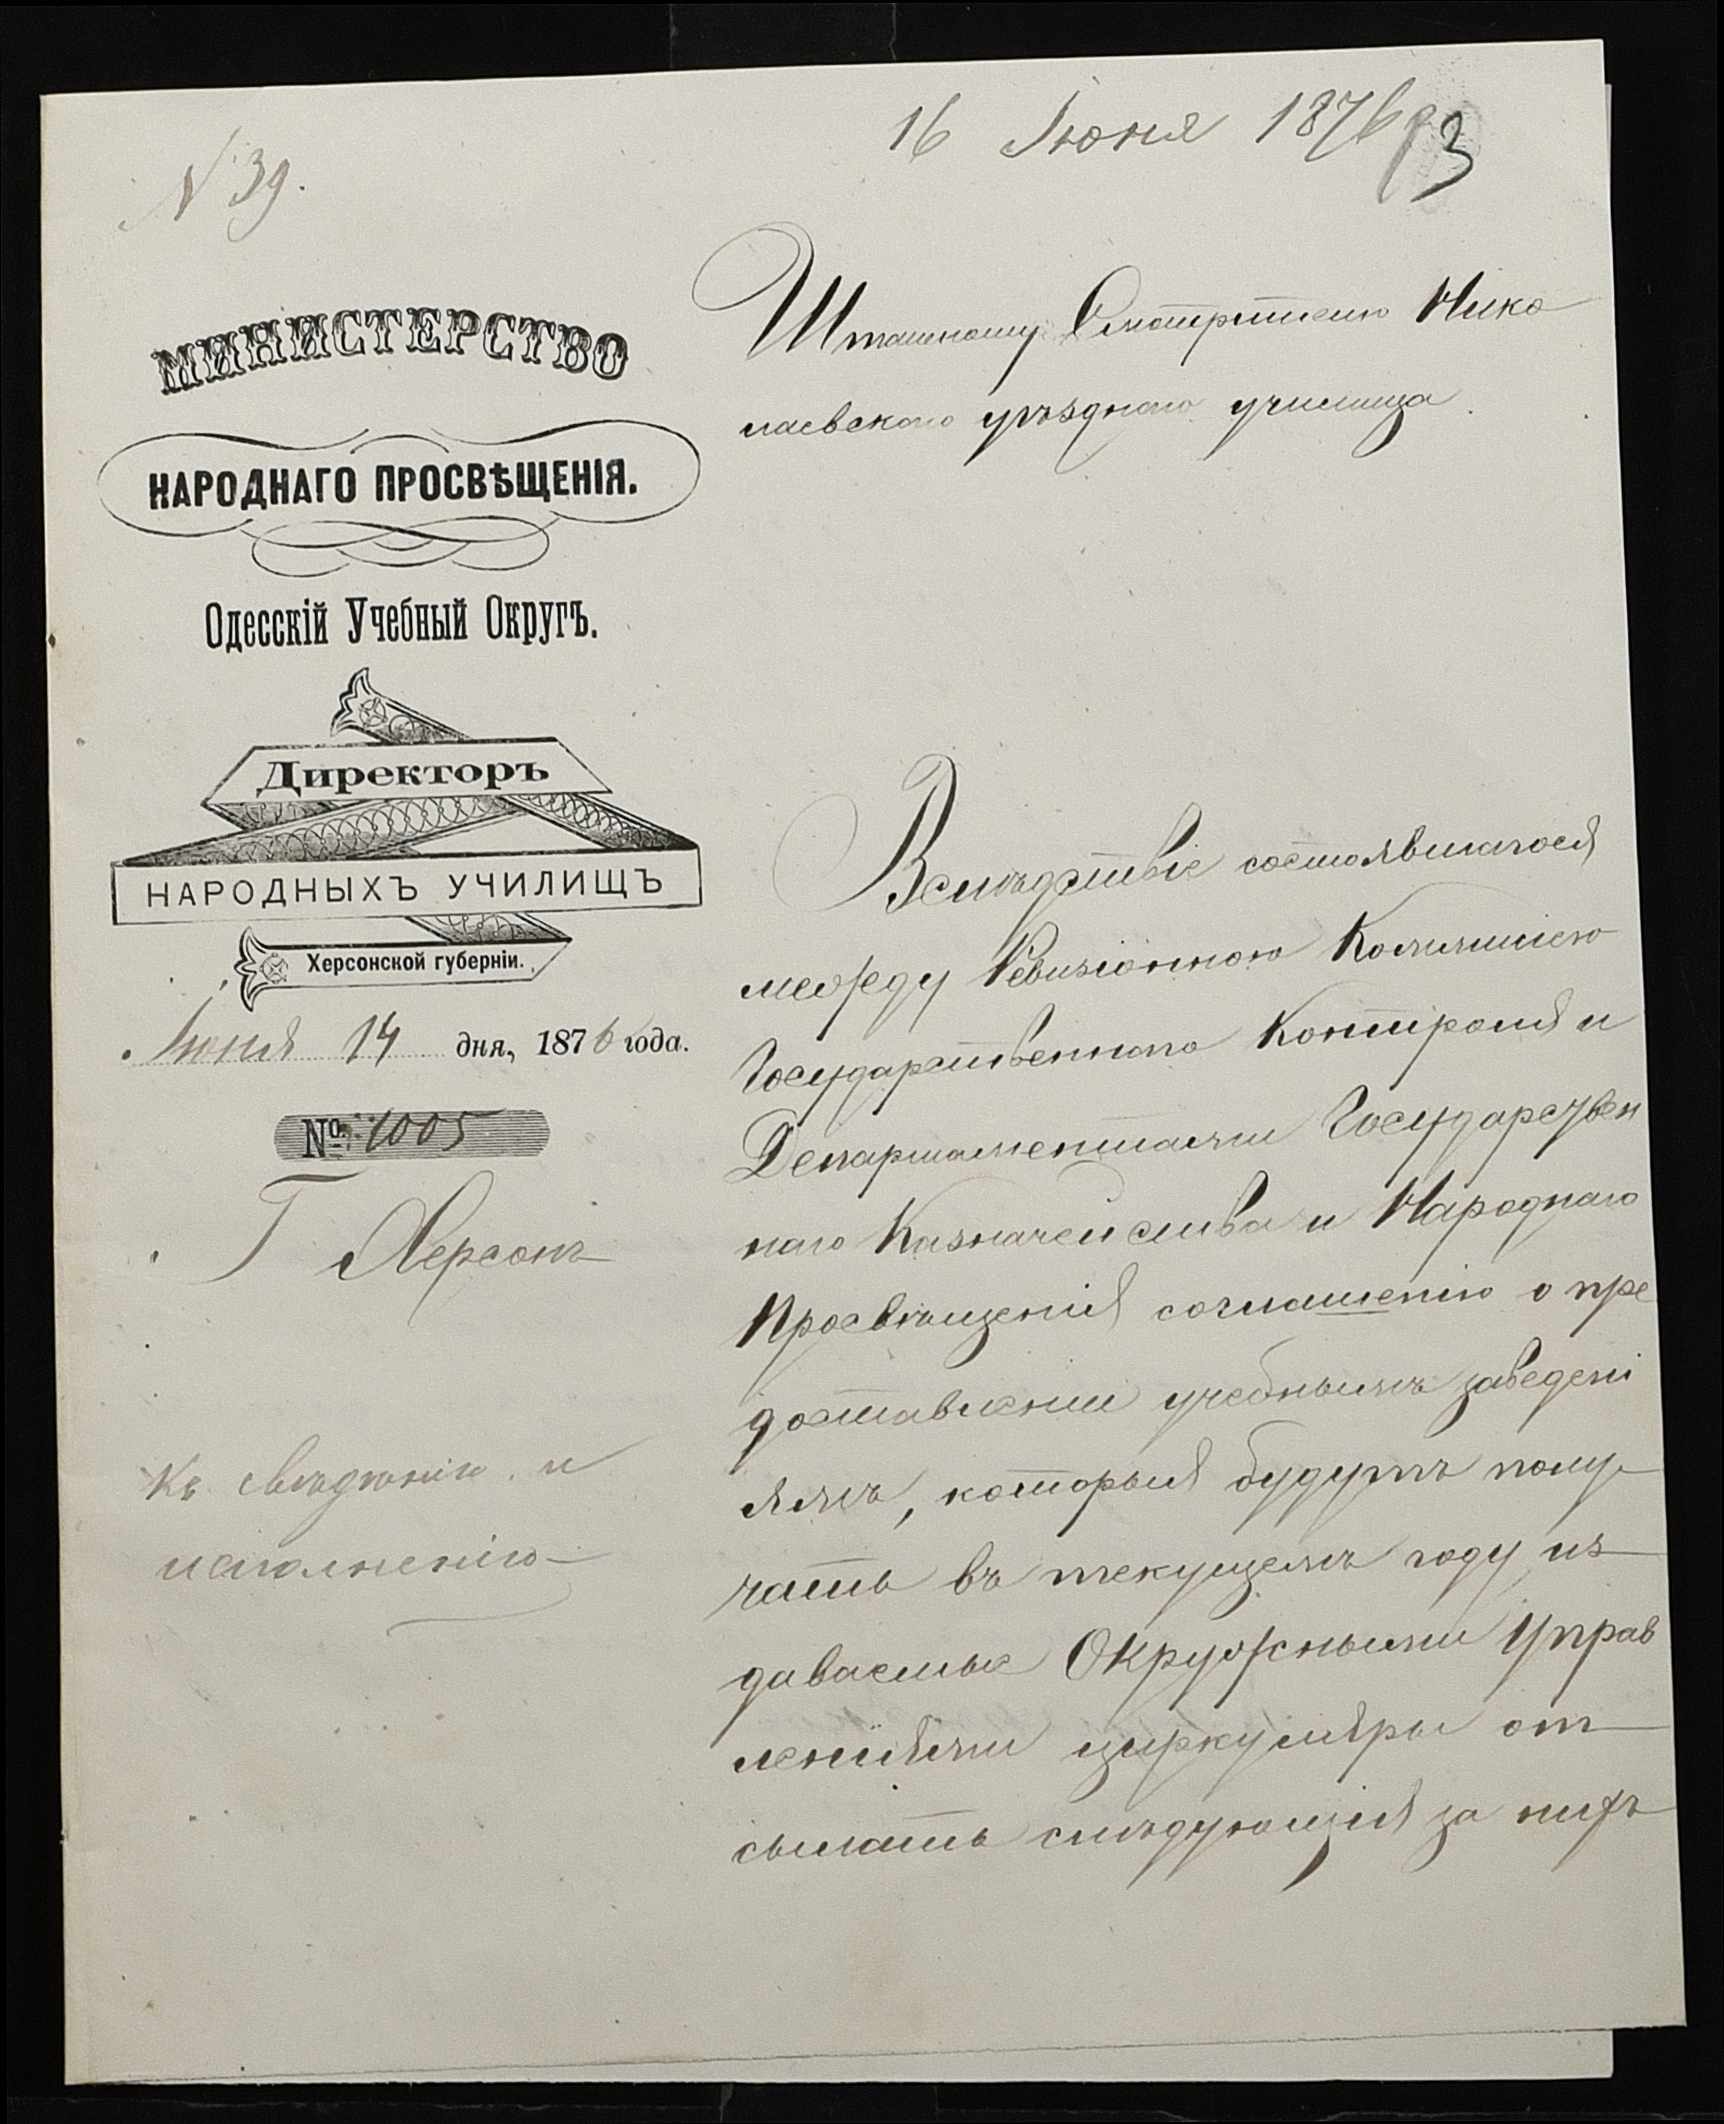 16 Июня 1876
3
N 39.
МИНИСТЕРСТВО
НАРОДНАГО ПРОСВѢЩЕНІЯ.
Одесскій Учебный Округъ.
Директоръ
НАРОДНЫХЪ УЧИЛИЩЪ
Херсонской губерніи.
Іюня 14 дня, 1876 года.
№ 1005
Г Херсонъ
Къ свѣдѣнію и
исполненію
Штатному Смотрителю Нико
лаевскаго уѣзднаго училища
Вслѣдствіе состоявшагося
между Ревизіонною Коммисіею
Государственнаго Контроля и
Департаментами Государствен
наго Казначейства и Народнаго
Просвѣщенія соглашенію о пре
доставленіи учебнымъ заведені
ямъ, которыя будутъ полу
чать въ текущемъ году из
даваемые Окружными Управ
леніями циркуляры от
сылать слѣдующія за нихъ